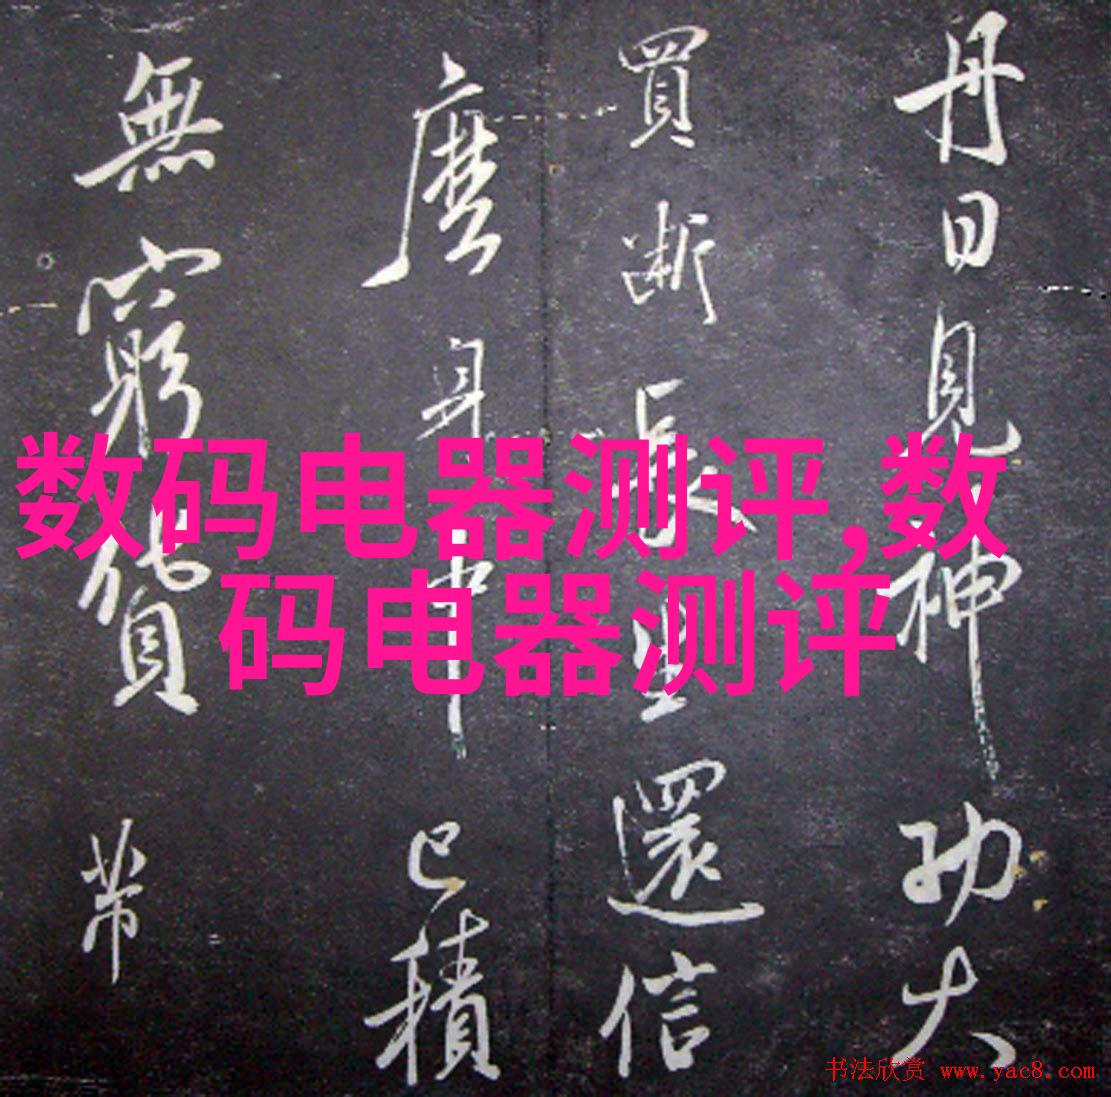 丹日見神功大
買斷長生還信
麽身中已積
無窮貨带
数码电器测评,数
码电器测评
书法欣赏 www.yac8.com